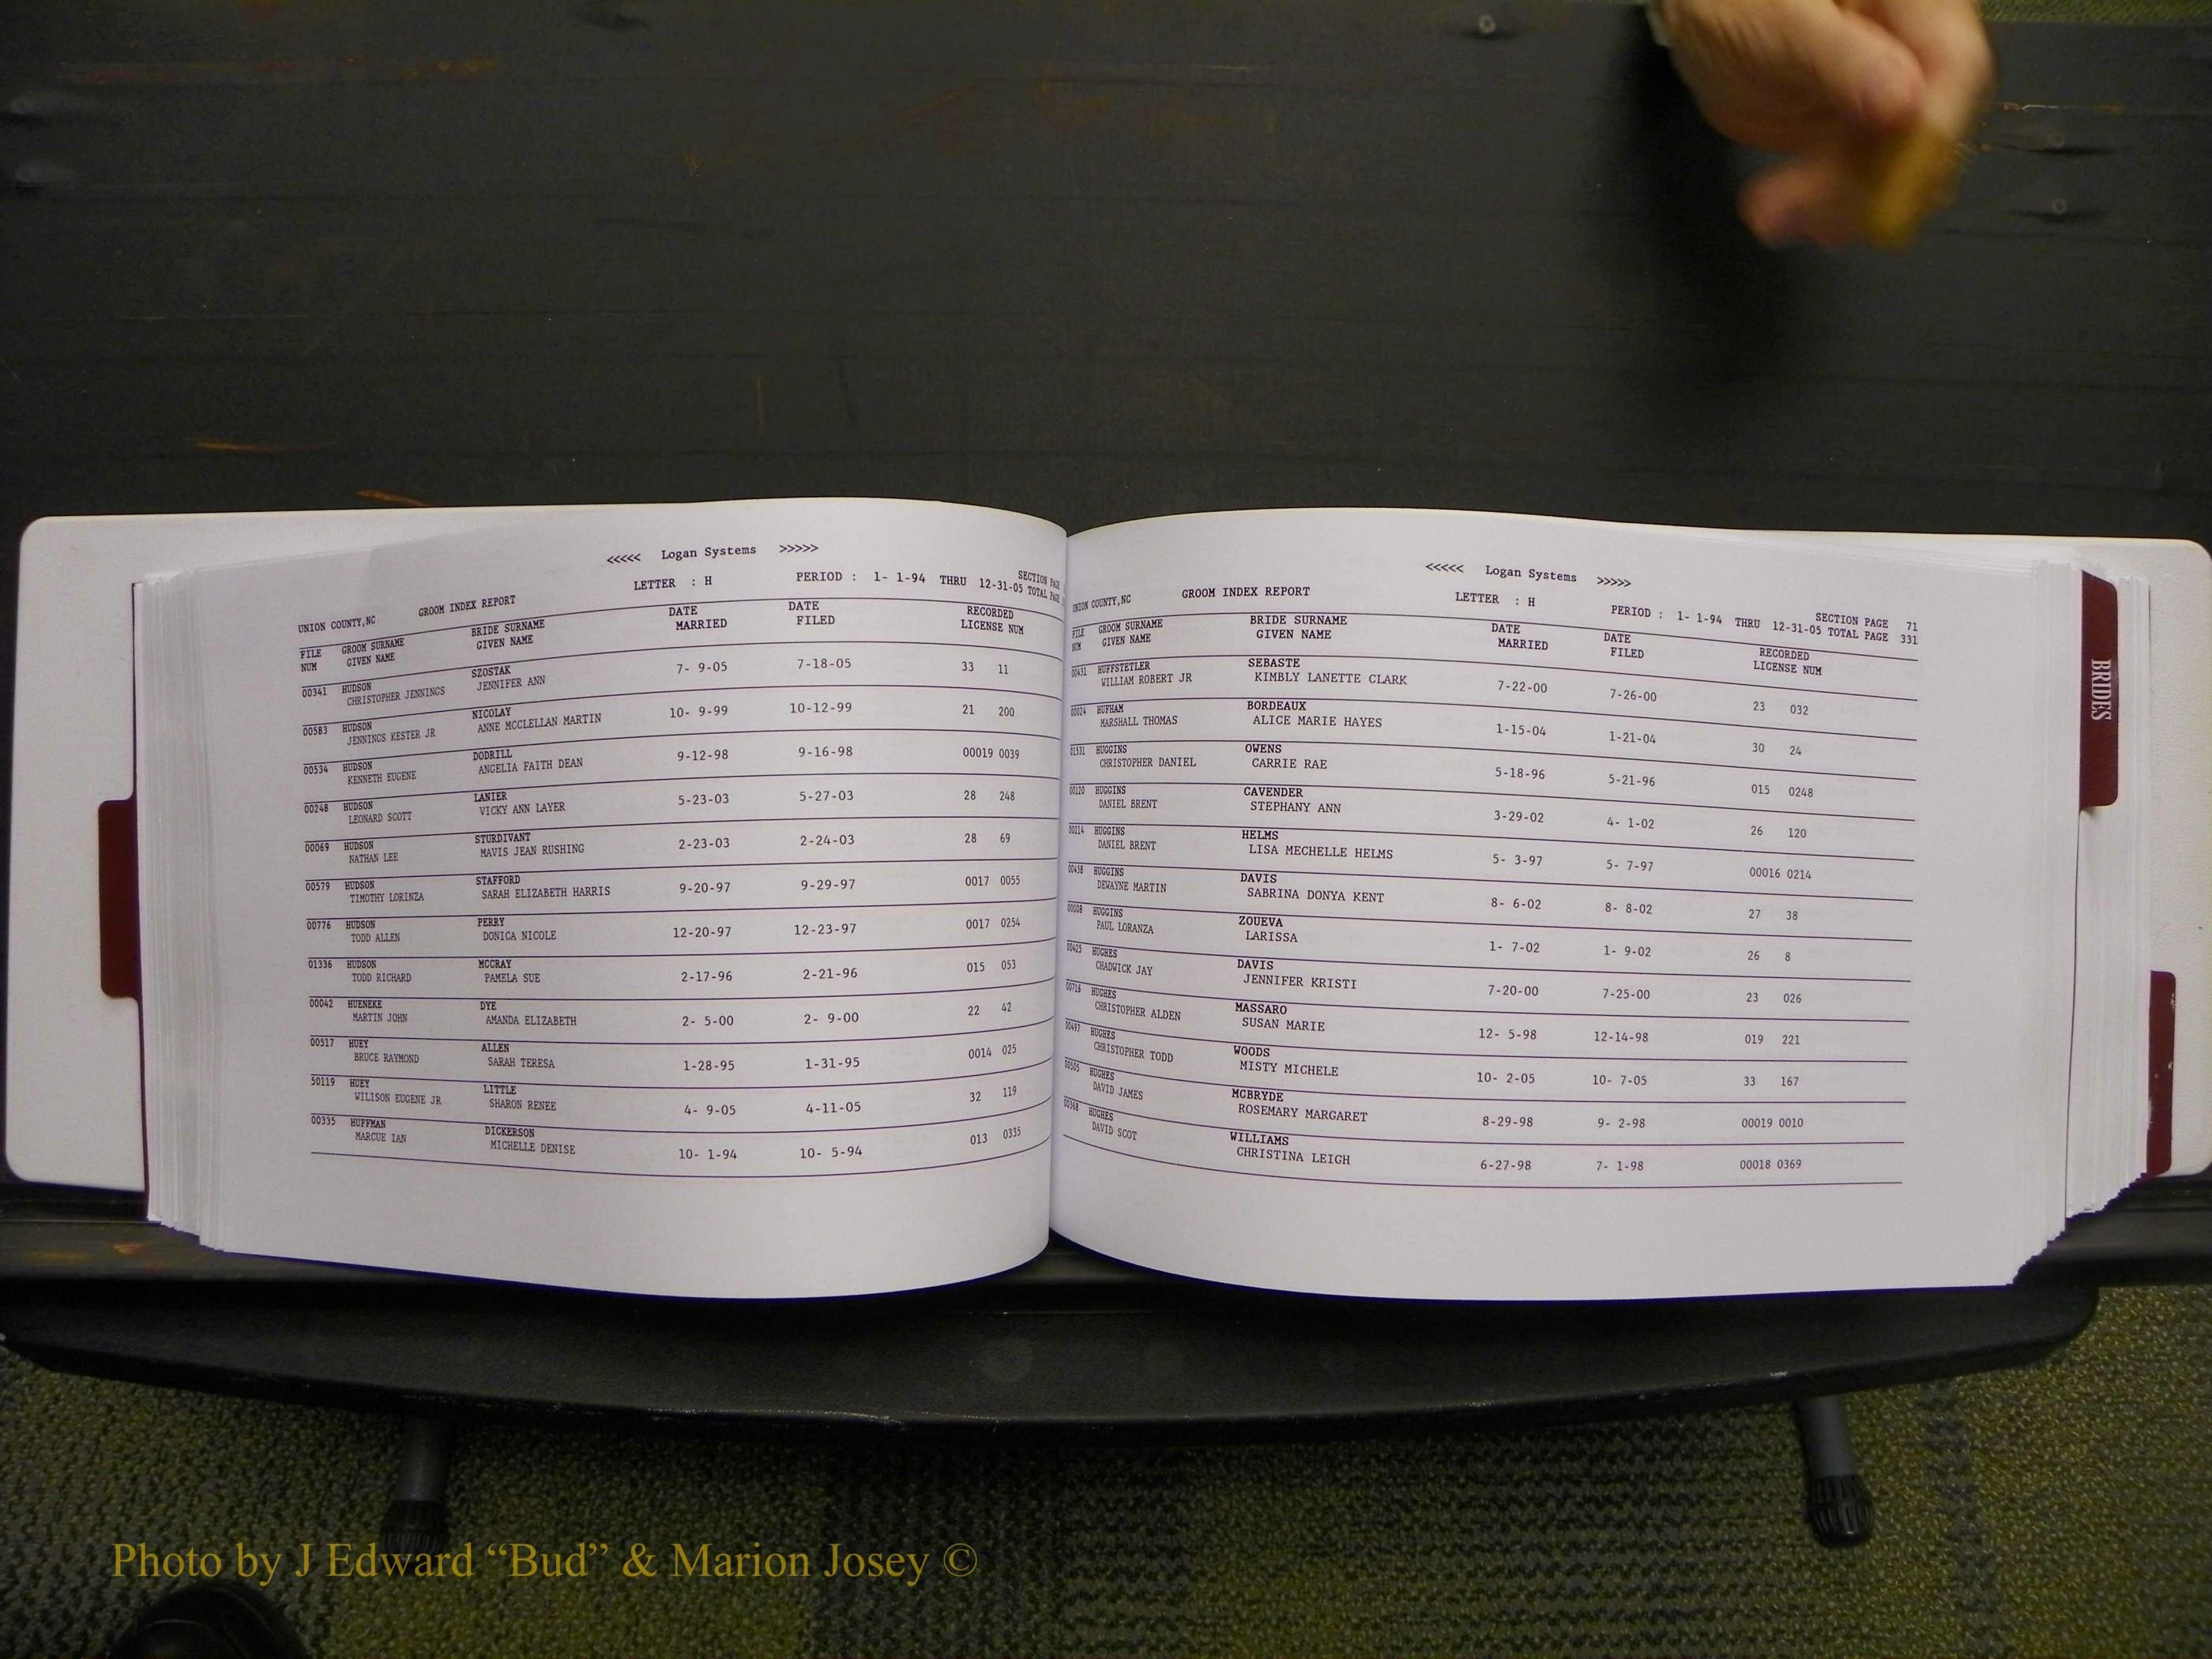 <<<<< Logan Systems >>>>>
UNION COUNTY,NC GROOM INDEX REPORT LETTER : H PERIOD : 1- 1-94 THRU 12-31-05 SECTION PAGE
TOTAL PAGE
FILE GROOM SURNAME BRIDE SURNAME DATE DATE RECORDED
NUM GIVEN NAME GIVEN NAME MARRIED FILED LICENSE NUM
00341 HUDSON SZOSTAK 7- 9-05 7-18-05 33 11
CHRISTOPHER JENNINGS JENNIFER ANN
00583 HUDSON NICOLAY 10- 9-99 10-12-99 21 200
JENNINGS KESTER JR ANNE MCCLELLAN MARTIN
00534 HUDSON DODRILL 9-12-98 9-16-98 00019 0039
KENNETH EUGENE ANGELIA FAITH DEAN
00248 HUDSON LANIER 5-23-03 5-27-03 28 248
LEONARD SCOTT VICKY ANN LAYER
00069 HUDSON STURDIVANT 2-23-03 2-24-03 28 69
NATHAN LEE MAVIS JEAN RUSHING
00579 HUDSON STAFFORD 9-20-97 9-29-97 0017 0055
TIMOTHY LORINZA SARAH ELIZABETH HARRIS
00776 HUDSON PERRY 12-20-97 12-23-97 0017 0254
TODD ALLEN DONICA NICOLE
01336 HUDSON MCCRAY 2-17-96 2-21-96 015 053
TODD RICHARD PAMELA SUE
00042 HUENEKE DYE 2- 5-00 2- 9-00 22 42
MARTIN JOHN AMANDA ELIZABETH
00517 HUEY ALLEN 1-28-95 1-31-95 0014 025
BRUCE RAYMOND SARAH TERESA
50119 HUEY LITTLE 4- 9-05 4-11-05 32 119
WILISON EUGENE JR SHARON RENEE
00335 HUFFMAN DICKERSON 10- 1-94 10- 5-94 013 0335
MARCUE IAN MICHELLE DENISE
<<<<< Logan Systems >>>>>
UNION COUNTY,NC GROOM INDEX REPORT LETTER : H PERIOD : 1- 1-94 THRU 12-31-05 SECTION PAGE 71
TOTAL PAGE 331
FILE GROOM SURNAME BRIDE SURNAME DATE DATE RECORDED
NUM GIVEN NAME GIVEN NAME MARRIED FILED LICENSE NUM
00431 HUFFSTETLER SEBASTE 7-22-00 7-26-00 23 032
WILLIAM ROBERT JR KIMBLY LANETTE CLARK
00024 HUFHAM BORDEAUX 1-15-04 1-21-04 30 24
MARSHALL THOMAS ALICE MARIE HAYES
01531 HUGGINS OWENS 5-18-96 5-21-96 015 0248
CHRISTOPHER DANIEL CARRIE RAE
00120 HUGGINS CAVENDER 3-29-02 4- 1-02 26 120
DANIEL BRENT STEPHANY ANN
00214 HUGGINS HELMS 5- 3-97 5- 7-97 00016 0214
DANIEL BRENT LISA MECHELLE HELMS
00438 HUGGINS DAVIS 8- 6-02 8- 8-02 27 38
DEWAYNE MARTIN SABRINA DONYA KENT
00008 HUGGINS ZOUEVA 1- 7-02 1- 9-02 26 8
PAUL LORANZA LARISSA
00425 HUGHES DAVIS 7-20-00 7-25-00 23 026
CHADWICK JAY JENNIFER KRISTI
00716 HUGHES MASSARO 12- 5-98 12-14-98 019 221
CHRISTOPHER ALDEN SUSAN MARIE
00497 HUGHES WOODS 10- 2-05 10- 7-05 33 167
CHRISTOPHER TODD MISTY MICHELE
00505 HUGHES MCBRYDE 8-29-98 9- 2-98 00019 0010
DAVID JAMES ROSEMARY MARGARET
00368 HUGHES WILLIAMS 6-27-98 7- 1-98 00018 0369
DAVID SCOT CHRISTINA LEIGH
BRIDES
Photo by J Edward “Bud” & Marion Josey ©